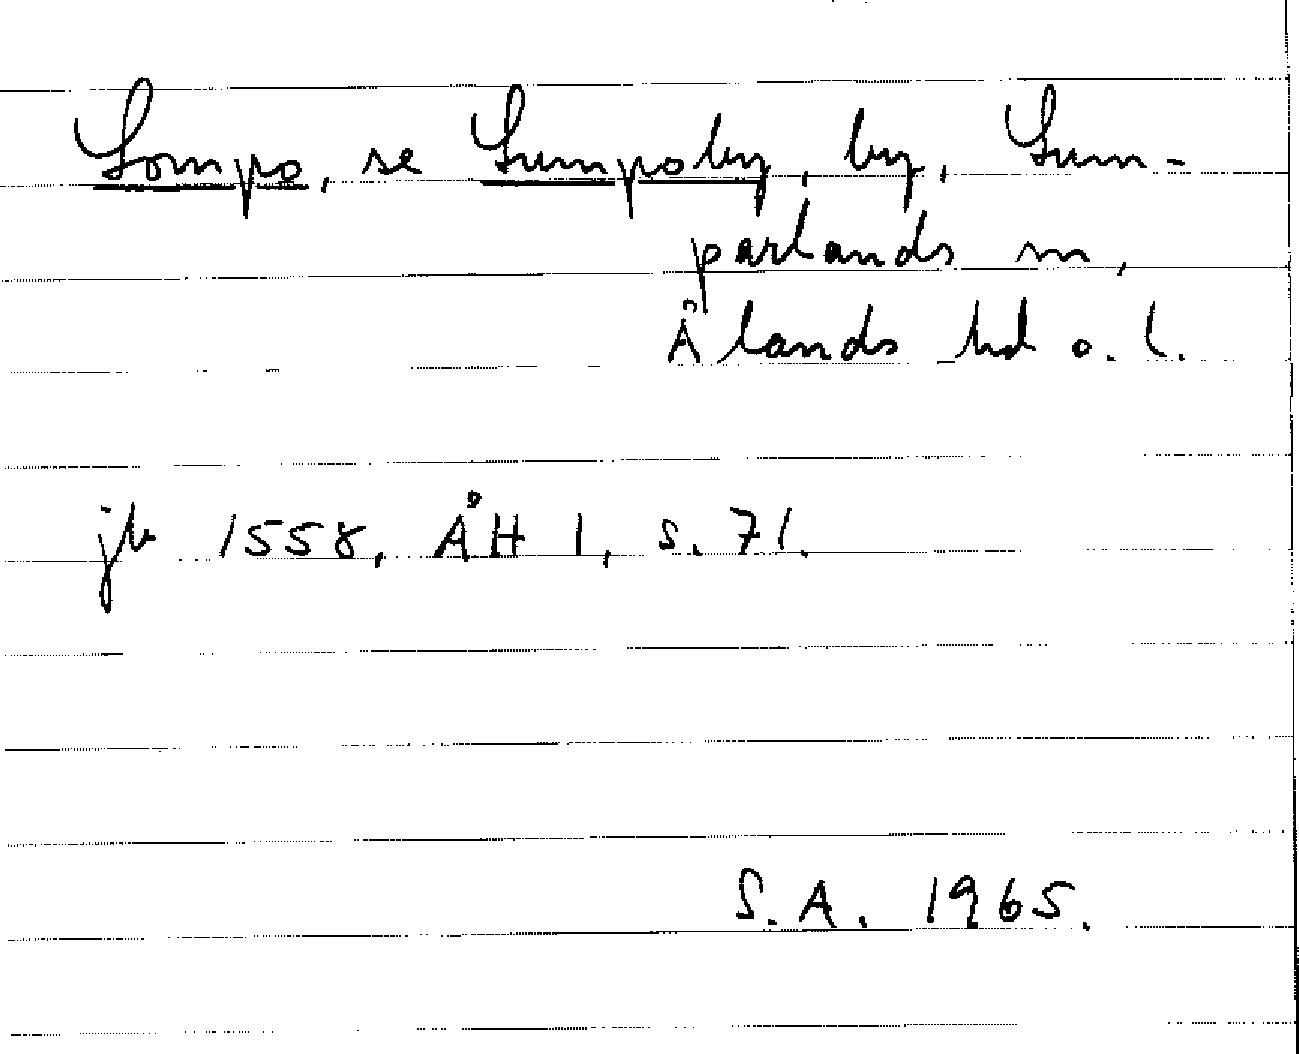 Lompo, se Lumpoby, by, Lum-
parlands sn,
Ålands hd o. l.
jb 1558, ÅH 1, s. 71.
S.A. 1965.